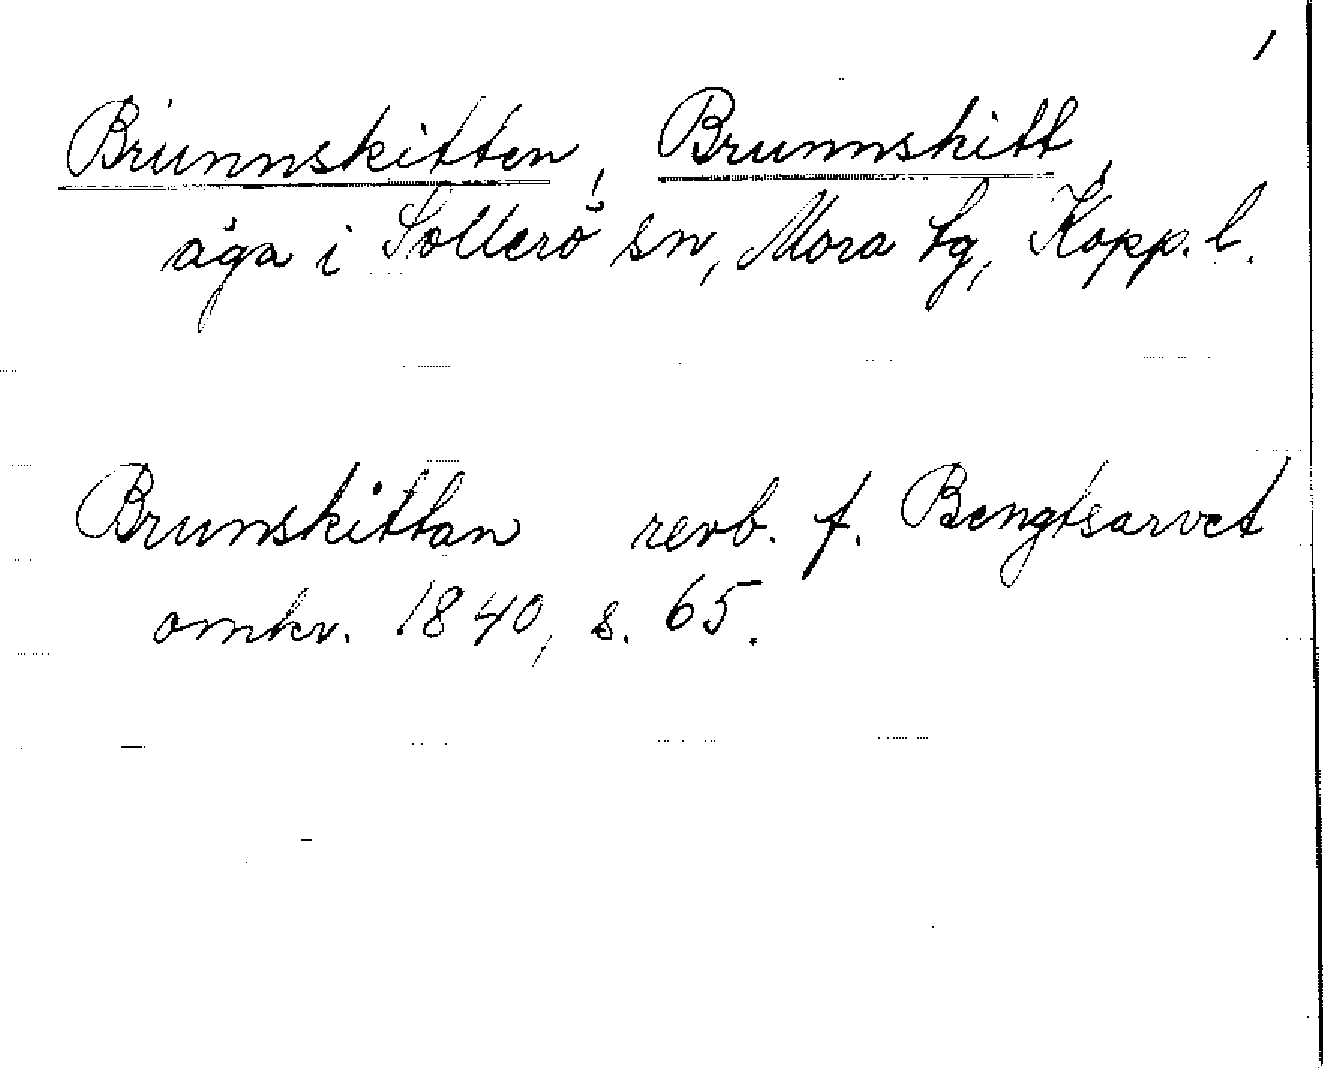 1
Brunnskitten, Brunnskitt,
äga i Sollerö sn, Mora tg, Kopp. l.
Brunskittan revb. f. Bengtsarvet
omkr. 1840, s. 65.